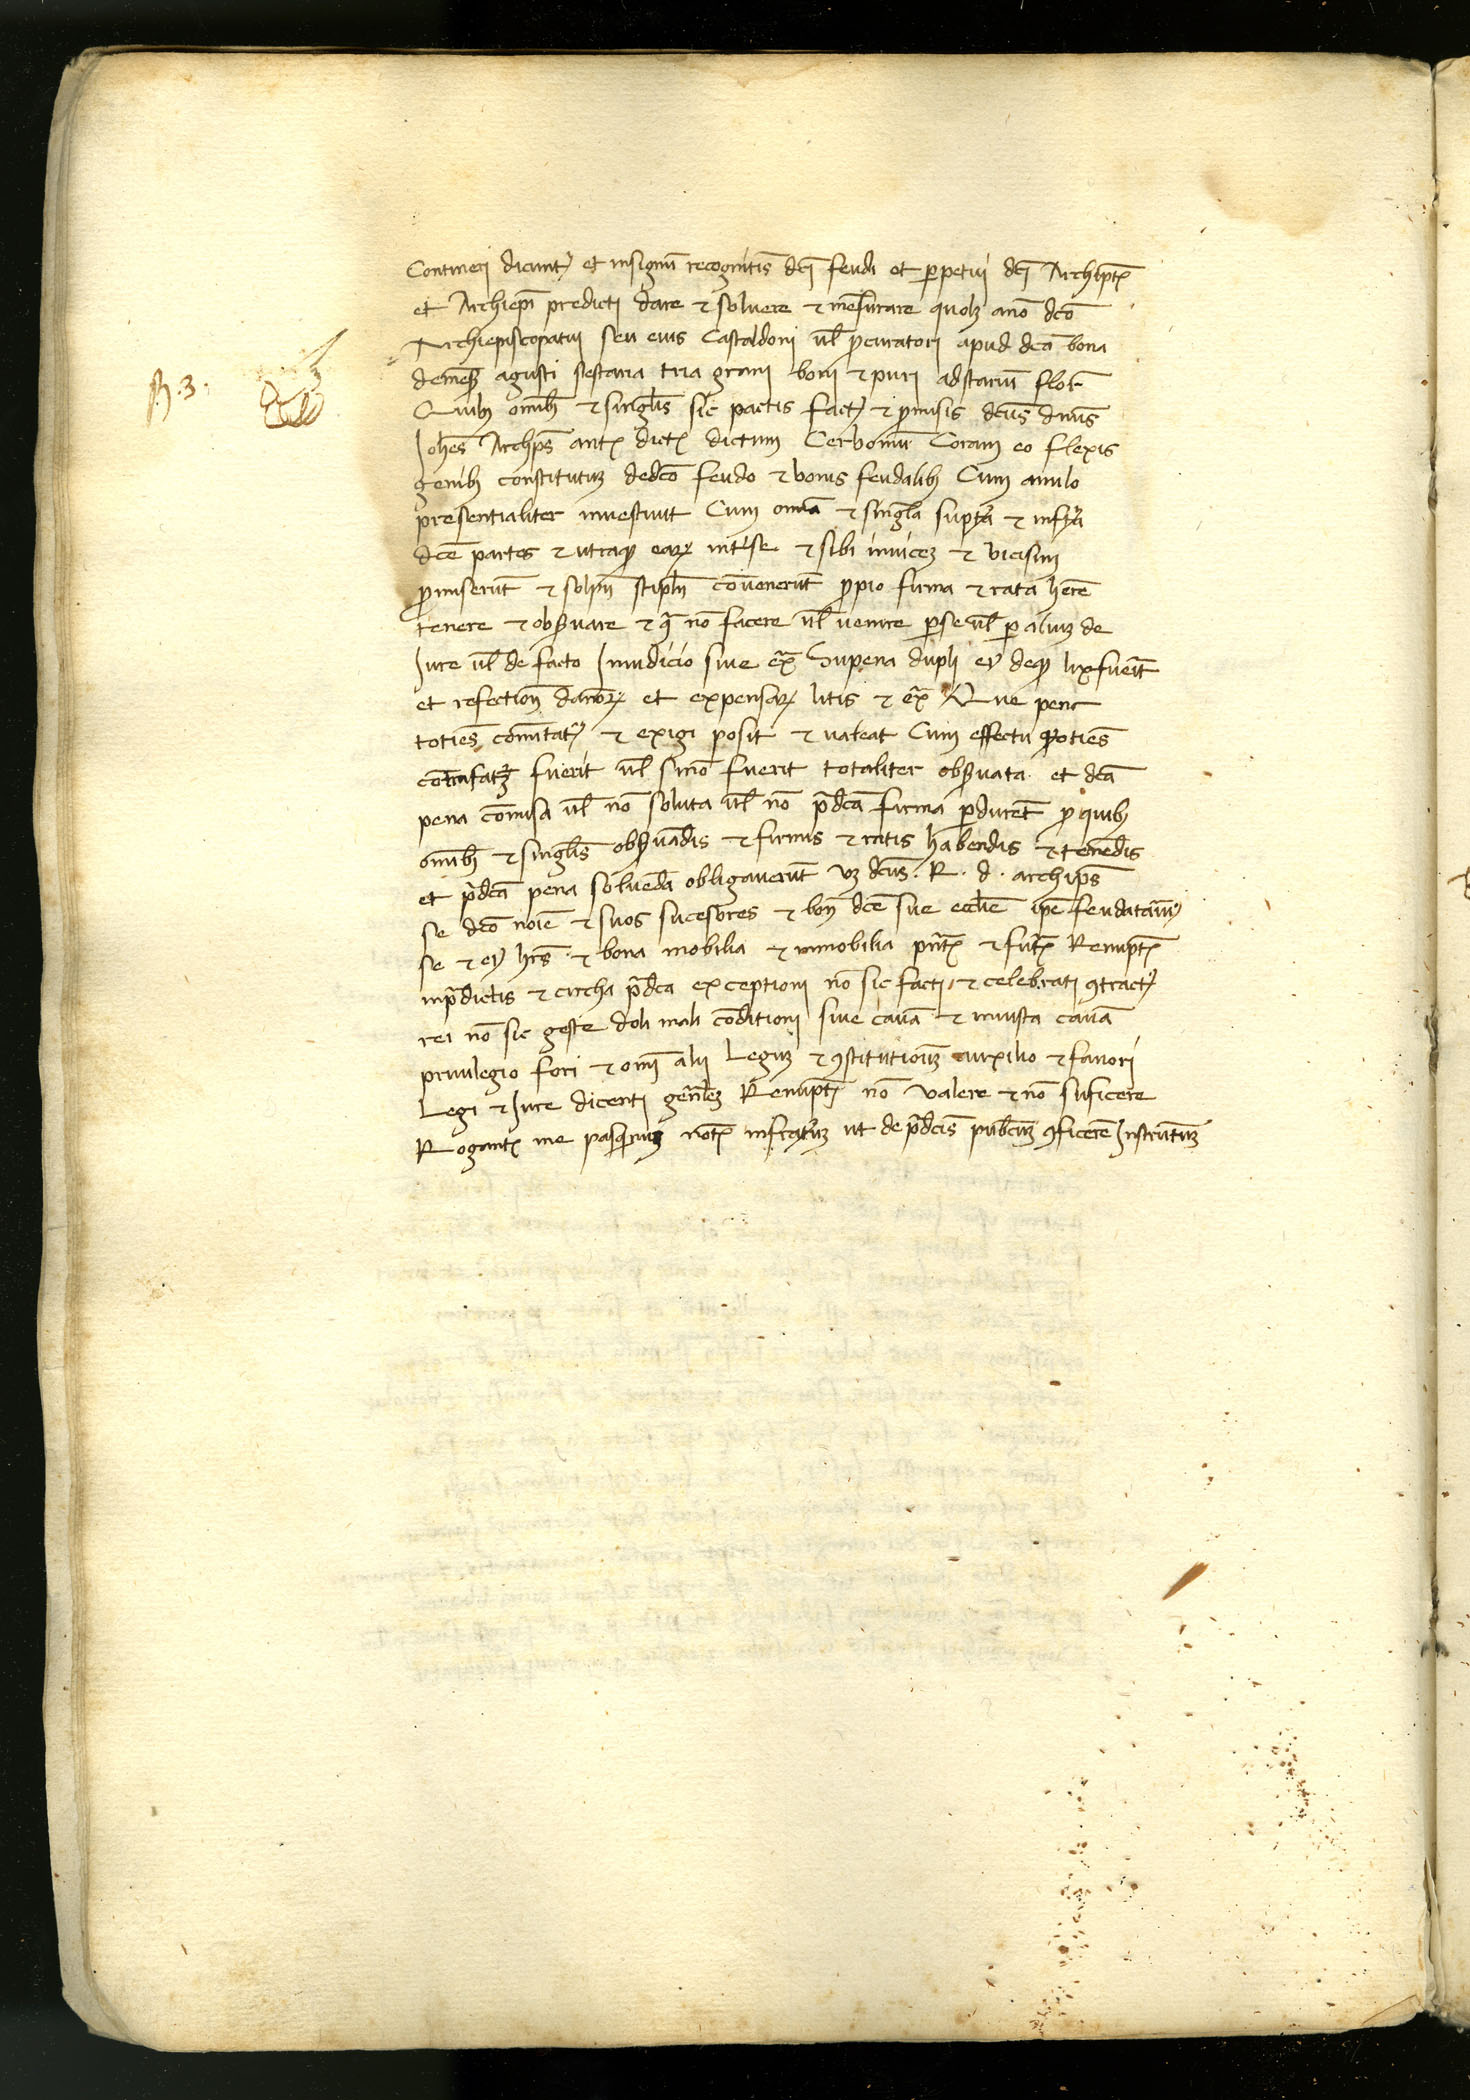 β. 3.
Contineri dicuntr et insignũ recognitiõs dcj feudi et perpetui dcj Archiptz
et Archiepĩ predicti dare & soluere & mẽsurare quolz anõ dcõ
Archiepiscopatui seu eius Castaldoni ul̃ procuratori apud dcã bona
de mense agusti sestaria tria grani boni & puri ad stariũ flot̃
Quibus omĩb & singul̃is sic pactis factis & promisis dcũs dnũs
Johẽs Archp̃s dictum Cerbonium Coram eo flexis
genib constitutuz de dcõ feudo & bonis feudalib Cum anulo
presentialiter inuestiuit Cum omĩa & singul̃a supta & infrta
dcẽ partes & utraq earũ int se & sibi inuicez & vicisim
promiserũt & solp̃ñ stipl̃ñ cõuenerũt propio firma & rata hẽre
tenere & obseruare & q̃ nõ facere ul̃ uenire per se ul̃ per aliuz de
Jure ul̃ de facto In iudicio siue ex̃ Sub pena dupli eius deq lix fuerit̃
et refectiõñ danorũ et expensarũ litis & ex̃ Que pena
totiẽs comĩtatr & exigi posit & ualeat Cum effectu quotiẽs
cõtrafatũ fuerit ul̃ si nõ fuerit totaliter obseruata et dcã
pena cõmisa ul̃ nõ soluta ul̃ nõ p̃dcã firma perdurẽt pro quib
omĩb & singul̃is obseruãdis & firmis & ratis habendis & tenẽdis
et p̃dcã pena soluẽda obligauerũt uz dcũs. R. d. archip̃s
se dcõ noĩe & suos sucesores & boñ dcẽ sue eccl̃ie ip̃e feudatariũs
se & eius hr̃s & bona mobilia & inmobilia pñtz & futz Renuptz
in p̃dictis & circha p̃dca exceptioni nõ sic facti & celebrati contractus
rei nõ sic geste doli mali cõditioni siue cauã & iniusta cauã
priuilegio fori & omĩ alij Leguz & constitutionuz auxilio & fauori
Legi & Jure dicenti gen̄lez Renuptz nõ valere & nõ suficere
Rogantz me pasquinuz notz infrascrptuz ut de p̃dcis publicuz conficerẽ Instrutuz